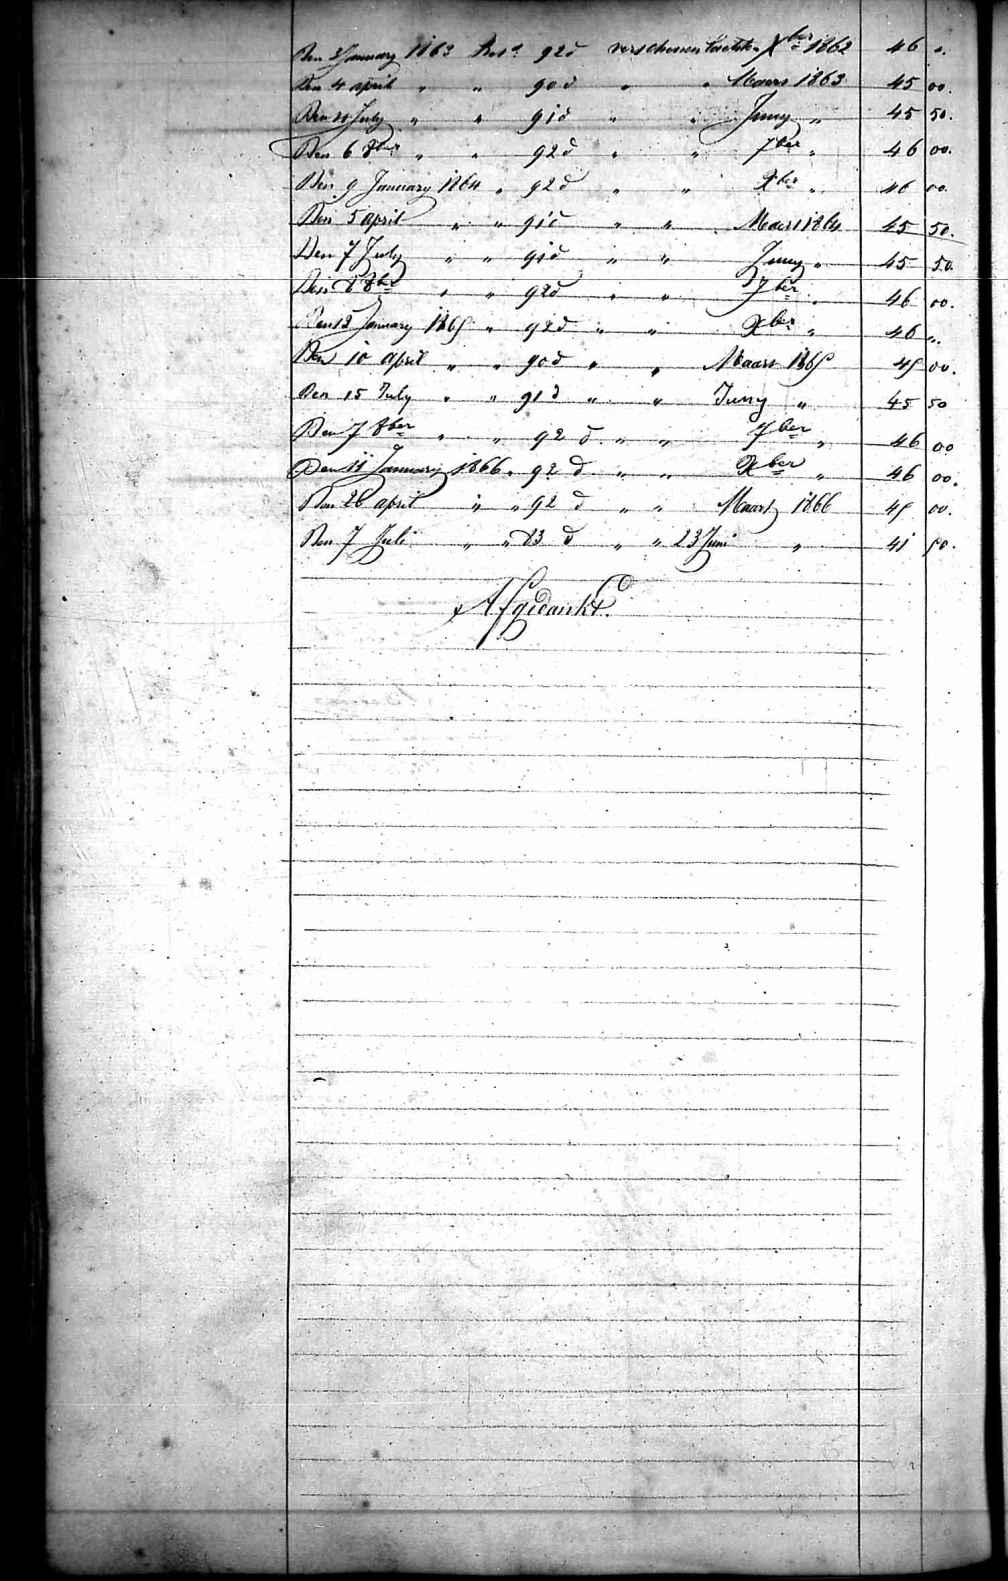 Den 3 January 1863 Bet.d 92 d verschenen laetste Xber 1862 46 "
Den 4 april " " 90 d " " Maers 1863 45 00.
Den July " " 91 d " " Juny " 45 50.
Den 6 8ber " " 92 d " " 7ber " 46 00.
Den 9 January 1864 " 92 d " " Xber " 46 00
Den 5 april " " 91 d " " Maert 1864 45 50.
Den 7 July " " 91 d " " Juny " 45 50.
Den 8 8ber " " 92 d " " 7ber " 46 00.
Den 12 January 1865 " 92 d " " Xber " 46 ".
Den 10 april " " 90 d " " Maart 1865 45 00.
Den 15 July " " 91 d " " Juny " 45 50
Den 7 8ber " " 92 d " " 7ber " 46 00
Den 11 January 1866 " 92 d " " Xber " 46 00.
Den 26 april " " 92 d " " Maart 1866 45 00.
Den 7 Juli " " 83 d " " 23 Juni " 41 50.
Afgedankt.